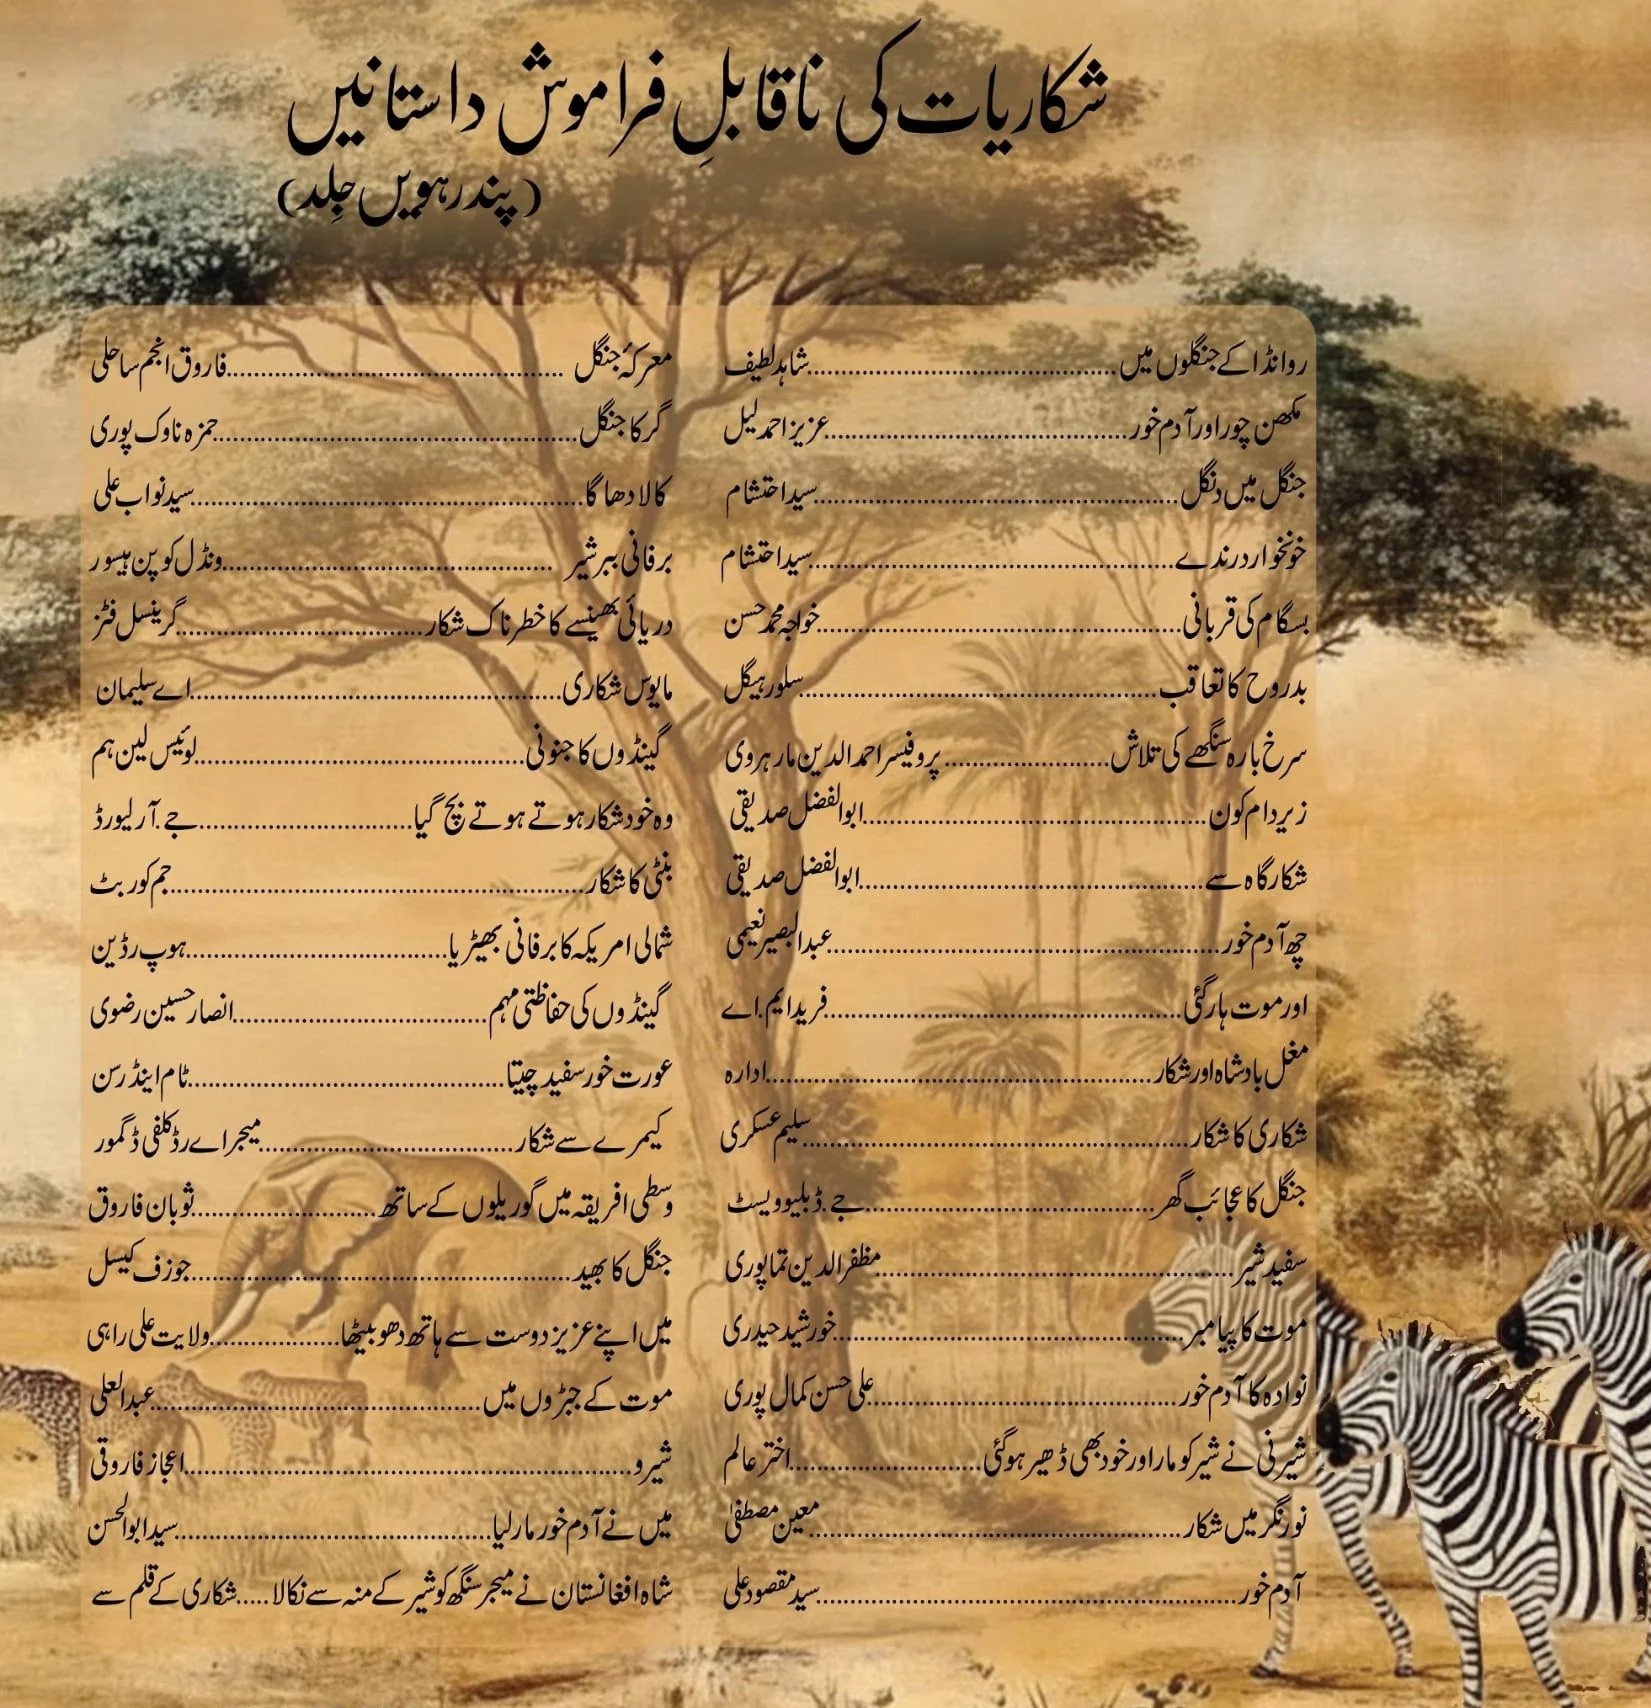 شکاریات کی ناقابلِ فراموش داستانیں
(پندرہویں جِلد)
روانڈا کے جنگلوں میں..............................شاہد لطیف
مکھن چور اور آدم خور..............................عزیز احمد لیل
جنگل میں دنگل..............................سید احتشام
خونخوار درندے..............................سید احتشام
بسگام کی قربانی..............................خواجہ محمد حسن
بدروح کا تعاقب..............................سلور ہیگل
سرخ بارہ سنگھے کی تلاش................پروفیسر احمد الدین مارہروی
زیر دام کون..............................ابوالفضل صدیقی
شکار گاہ سے..............................ابوالفضل صدیقی
چھ آدم خور..............................عبدالبصیر نعیمی
اور موت ہار گئی..............................فرید ایم.اے
مغل بادشاہ اور شکار..............................ادارہ
شکاری کا شکار..............................سلیم عسکری
جنگل کا عجائب گھر..............................جے.ڈبلیو ویسٹ
سفید شیر..............................مظفر الدین تماپوری
موت کا پیامبر..............................خورشید حیدری
نوادہ کا آدم خور..............................علی حسن کمال پوری
شیرنی نے شیر کو مارا اور خود بھی ڈھیر ہوگئی................اختر عالم
نور نگر میں شکار..............................معین مصطفیٰ
آدم خور..............................سید مقصود علی
معرکۂ جنگل..............................فاروق انجم ساحلی
گر کا جنگل..............................حمزہ ناوک پوری
کالا دھاگا..............................سید نواب علی
برفانی ببر شیر..............................ونڈل کوپن ہیسور
دریائی بھینسے کا خطرناک شکار....................گرینسل فٹز
مایوس شکاری..............................اے سلیمان
گینڈوں کا جنونی..............................لوئیس لین ہم
وہ خود شکار ہوتے ہوتے بچ گیا....................جے.آر لیورڈ
بنٹی کا شکار..............................جم کوربٹ
شمالی امریکہ کا برفانی بھیڑیا....................ہوپ رڈین
گینڈوں کی حفاظتی مہم....................انصار حسین رضوی
عورت خور سفید چیتا..............................ٹام اینڈرسن
کیمرے سے شکار....................میجر اے رڈکلفی ڈگمور
وسطی افریقہ میں گوریلوں کے ساتھ................ثوبان فاروق
جنگل کا بھید..............................جوزف کیسل
میں اپنے عزیز دوست سے ہاتھ دھو بیٹھا............ولایت علی راہی
موت کے جبڑوں میں..............................عبدالعلی
شیرو..............................اعجاز فاروقی
میں نے آدم خور مار لیا..............................سید ابوالحسن
شاہ افغانستان نے میجر سنگھ کو شیر کے منہ سے نکالا.....شکاری کے قلم سے